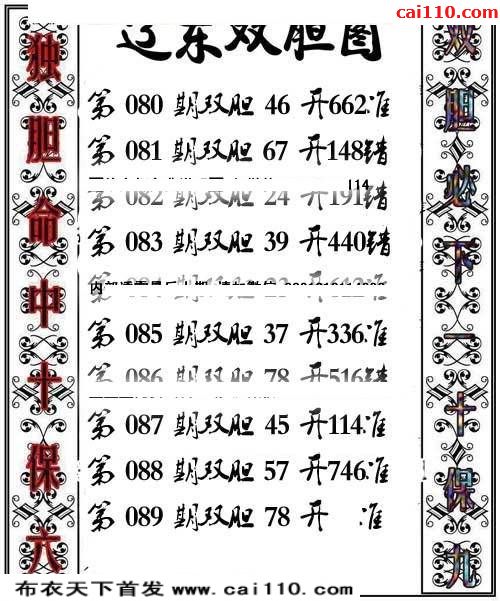 cai110.com
辽东双胆图
独胆命中十保六
双胆必下一十保九
第 080 期双胆 46 开662准
第 081 期双胆 67 开148错
114
第 082 期双胆 24 开191错
第 083 期双胆 39 开440错
第 085 期双胆 37 开336准
第 086 期双胆 78 开516错
第 087 期双胆 45 开114准
第 088 期双胆 57 开746准
第 089 期双胆 78 开 准
布衣天下首发 www.cai110.com